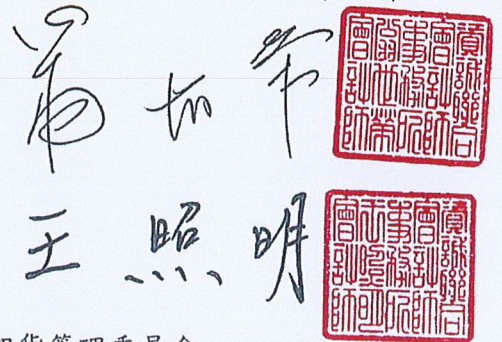 翁世榮
資誠聯合
會計師
事務所
翁世榮
會計師
王照明
資誠聯合
會計師
事務所
王照明
會計師
貨管理委員會